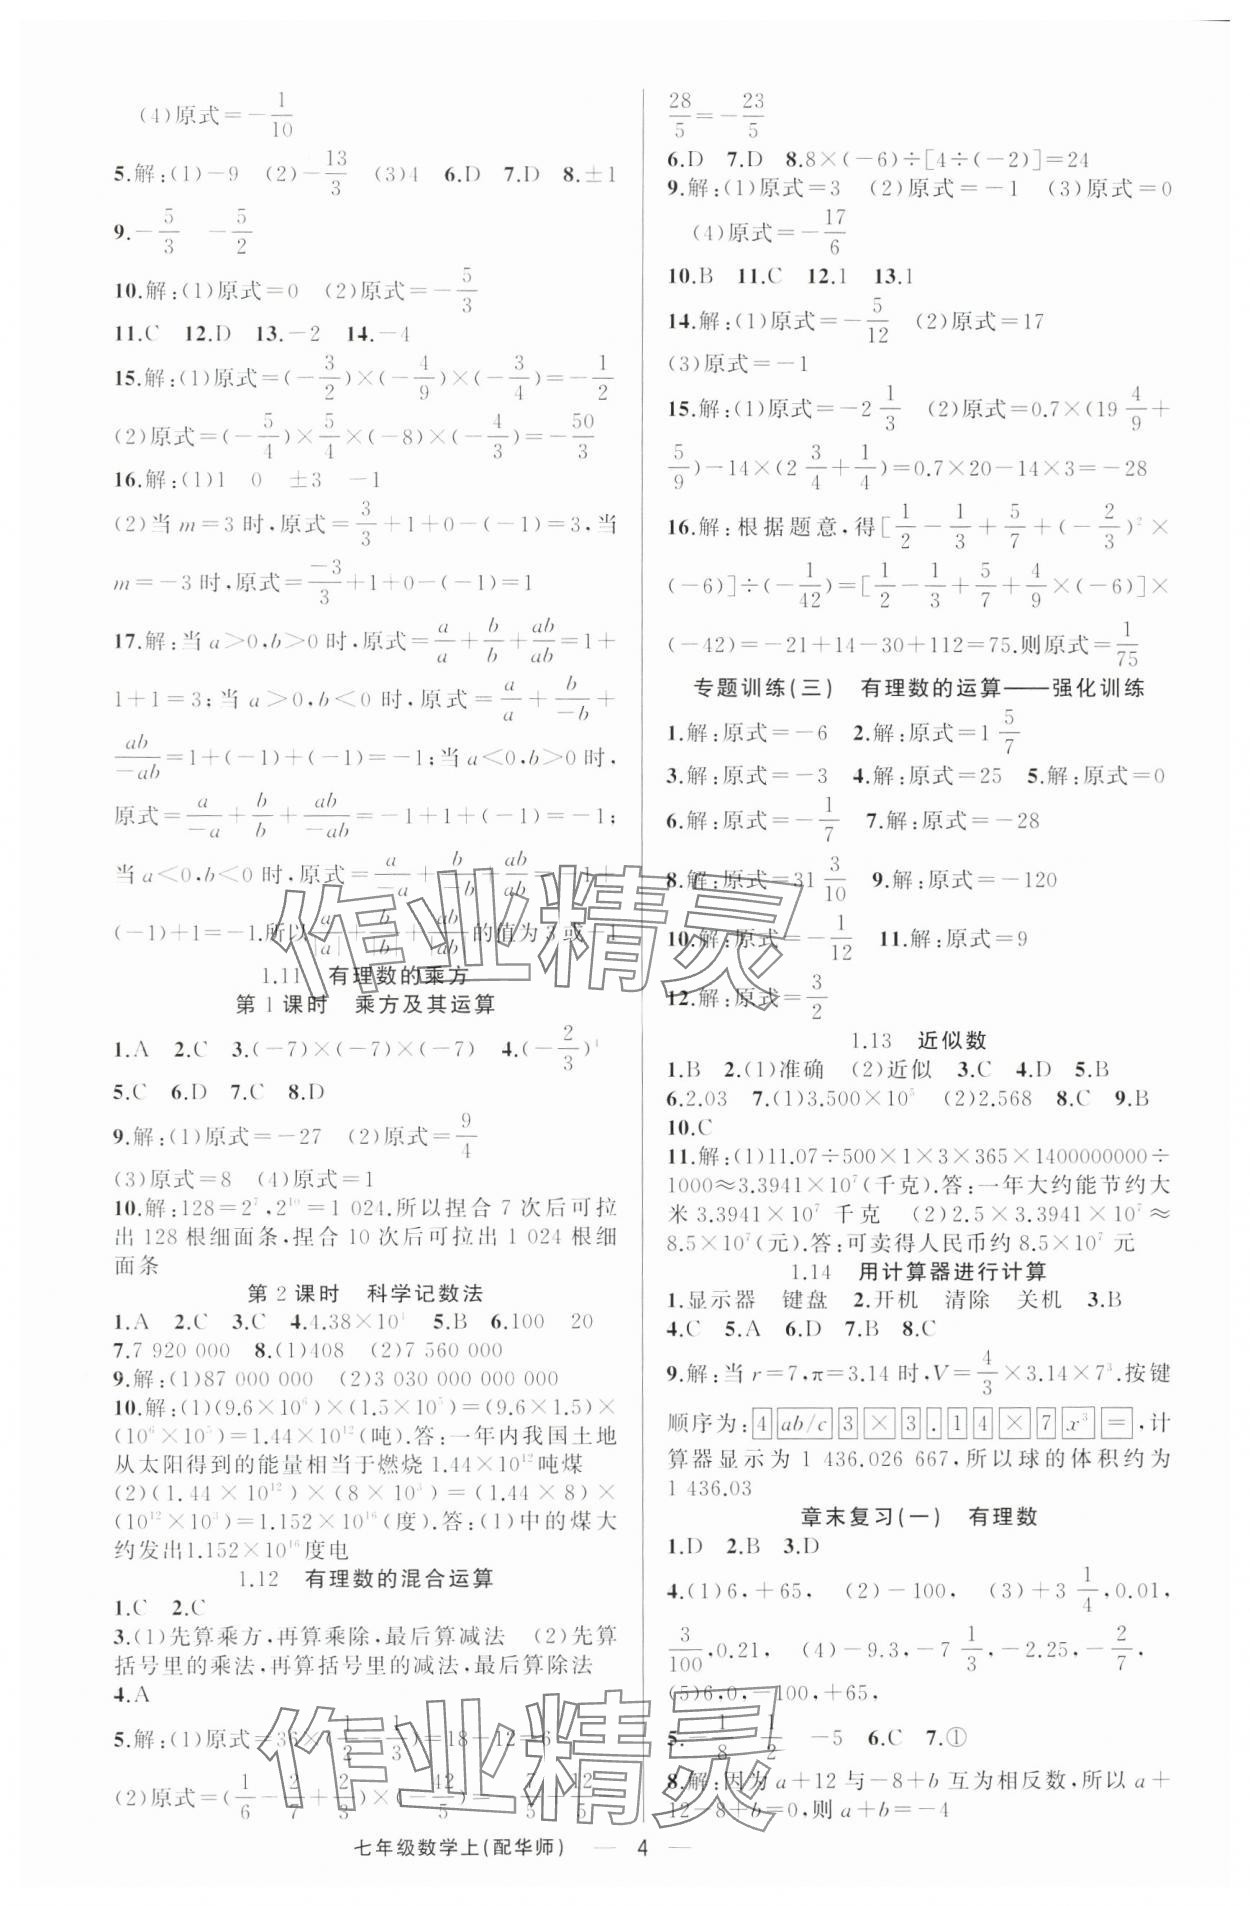 (4)原式=-1/10
5.解:(1)-9 (2)-13/3 (3)4 6.D 7.D 8.±1
9.-5/3 -5/2
10.解:(1)原式=0 (2)原式=-5/3
11.C 12.D 13.-2 14.-4
15.解:(1)原式=(-3/2)×(-4/9)×(-3/4)=-1/2
(2)原式=(-5/4)×5/4×(-8)×(-4/3)=-50/3
16.解:(1)1 0 ±3 -1
(2)当m=3时,原式=3/3+1+0-(-1)=3,当
m=-3时,原式=-3/3+1+0-(-1)=1
17.解:当a>0,b>0时,原式=a/a+b/b+ab/ab=1+
1+1=3;当a>0,b<0时,原式=a/a+b/-b+
ab/-ab=1+(-1)+(-1)=-1;当a<0,b>0时,
原式=a/-a+b/b+ab/-ab=-1+1+(-1)=-1;
当a<0,b<0时,原式=a/-a+b/-b+ab/ab=-1+
(-1)+1=-1.所以a/|a|+b/|b|+ab/|ab|的值为3或-1
1.11 有理数的乘方
第1课时 乘方及其运算
1.A 2.C 3.(-7)×(-7)×(-7) 4.(-2/3)⁴
5.C 6.D 7.C 8.D
9.解:(1)原式=-27 (2)原式=9/4
(3)原式=8 (4)原式=1
10.解:128=2⁷,2¹⁰=1 024.所以捏合7次后可拉
出128根细面条,捏合10次后可拉出1 024根细
面条
第2课时 科学记数法
1.A 2.C 3.C 4.4.38×10⁴ 5.B 6.100 20
7.7 920 000 8.(1)408 (2)7 560 000
9.解:(1)87 000 000 (2)3 030 000 000 000
10.解:(1)(9.6×10⁶)×(1.5×10⁵)=(9.6×1.5)×
(10⁶×10⁵)=1.44×10¹²(吨).答:一年内我国土地
从太阳得到的能量相当于燃烧1.44×10¹²吨煤
(2)(1.44×10¹²)×(8×10³)=(1.44×8)×
(10¹²×10³)=1.152×10¹⁶(度).答:(1)中的煤大
约发出1.152×10¹⁶度电
1.12 有理数的混合运算
1.C 2.C
3.(1)先算乘方,再算乘除,最后算减法 (2)先算
括号里的乘法,再算括号里的减法,最后算除法
4.A
5.解:(1)原式=36×(1/2-1/3)=18-12=6
(2)原式=(1/6-2/7+2/3)×(-42/5)=-7/5+12/5-
28/5=-23/5
6.D 7.D 8.8×(-6)÷[4÷(-2)]=24
9.解:(1)原式=3 (2)原式=-1 (3)原式=0
(4)原式=-17/6
10.B 11.C 12.1 13.1
14.解:(1)原式=-5/12 (2)原式=17
(3)原式=-1
15.解:(1)原式=-2 1/3 (2)原式=0.7×(19 4/9+
5/9)-14×(2 3/4+1/4)=0.7×20-14×3=-28
16.解:根据题意,得[1/2-1/3+5/7+(-2/3)²×
(-6)]÷(-1/42)=[1/2-1/3+5/7+4/9×(-6)]×
(-42)=-21+14-30+112=75.则原式=1/75
专题训练(三) 有理数的运算——强化训练
1.解:原式=-6 2.解:原式=1 5/7
3.解:原式=-3 4.解:原式=25 5.解:原式=0
6.解:原式=-1/7 7.解:原式=-28
8.解:原式=31 3/10 9.解:原式=-120
10.解:原式=-1/12 11.解:原式=9
12.解:原式=3/2
1.13 近似数
1.B 2.(1)准确 (2)近似 3.C 4.D 5.B
6.2.03 7.(1)3.500×10⁵ (2)2.568 8.C 9.B
10.C
11.解:(1)11.07÷500×1×3×365×1400000000÷
1000≈3.3941×10⁷(千克).答:一年大约能节约大
米3.3941×10⁷千克 (2)2.5×3.3941×10⁷≈
8.5×10⁷(元).答:可卖得人民币约8.5×10⁷元
1.14 用计算器进行计算
1.显示器 键盘 2.开机 清除 关机 3.B
4.C 5.A 6.D 7.B 8.C
9.解:当r=7,π=3.14时,V=4/3×3.14×7³.按键
顺序为:4 ab/c 3 × 3 . 1 4 × 7 x³ =,计
算器显示为1 436.026 667,所以球的体积约为
1 436.03
章末复习(一) 有理数
1.D 2.B 3.D
4.(1)6,+65, (2)-100, (3)+3 1/4,0.01,
3/100,0.21, (4)-9.3,-7 1/3,-2.25,-2/7,
(5)6,0,-100,+65,
5.-1/8 -1/2 -5 6.C 7.①
8.解:因为a+12与-8+b互为相反数,所以a+
12-8+b=0,则a+b=-4
七年级数学上(配华师) — 4 —
作业精灵
作业精灵